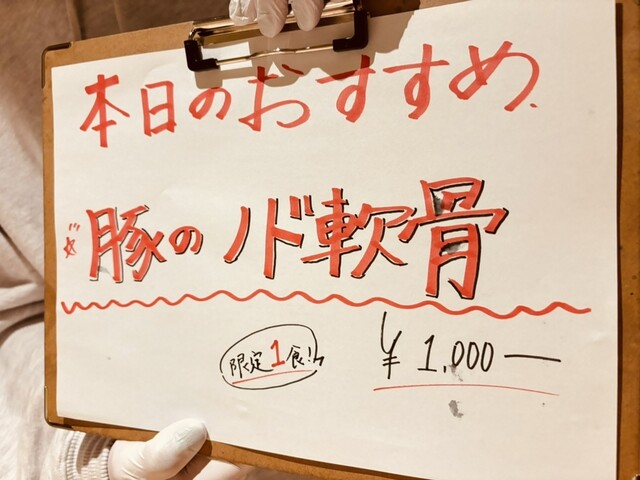 本日のおすすめ.
☆豚のノド軟骨
限定1食!!
¥1,000ー